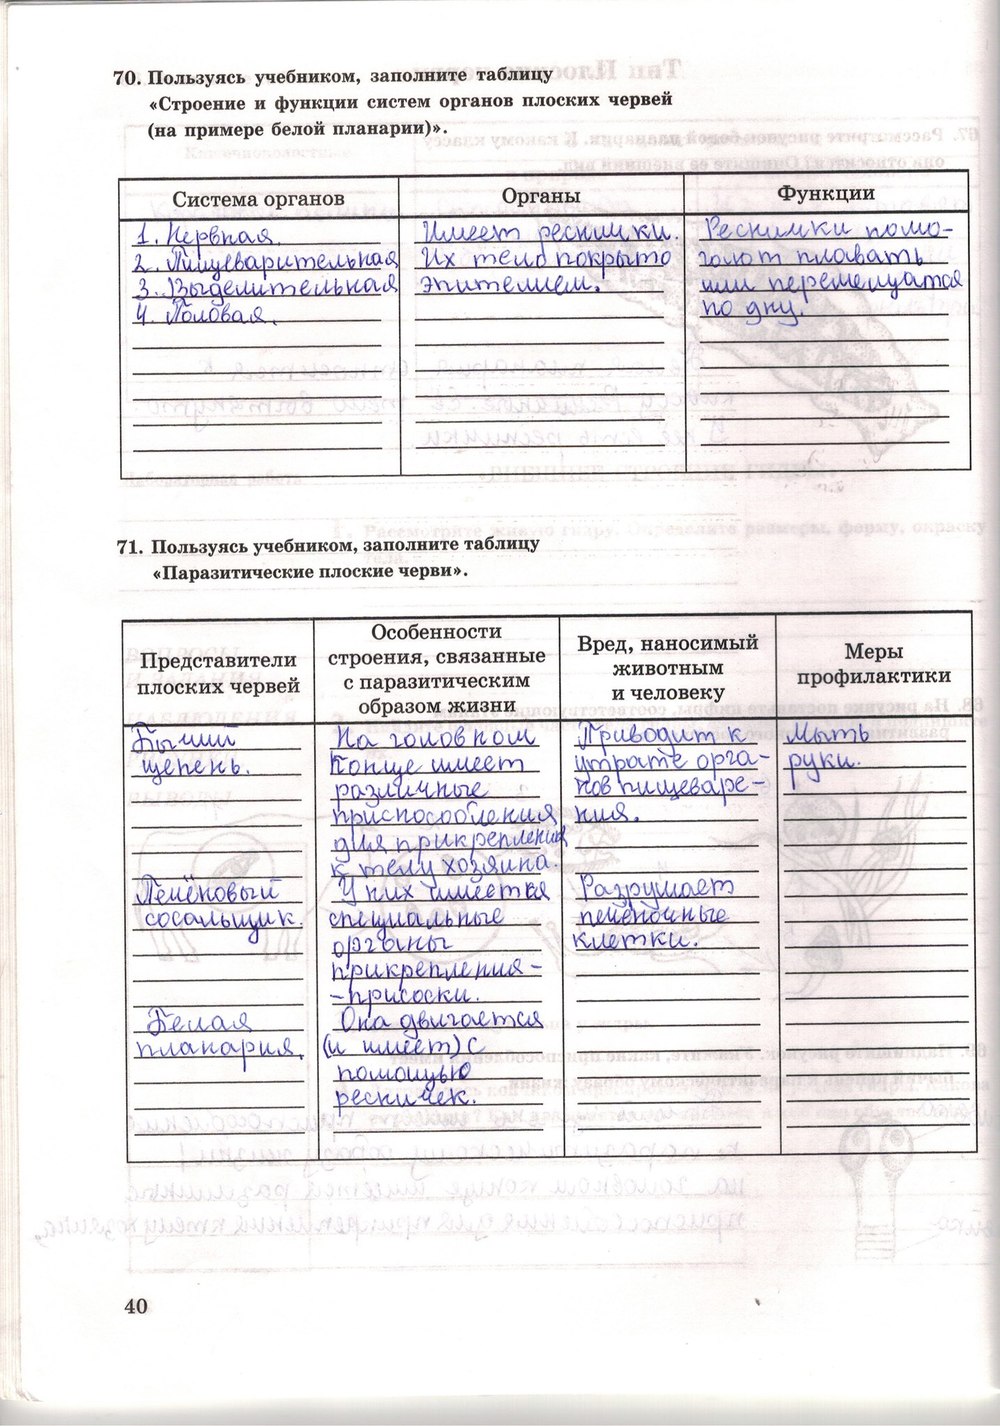 70. Пользуясь учебником, заполните таблицу
«Строение и функции систем органов плоских червей
(на примере белой планарии)».
Система органов
Органы
Функции
1. Нервная.
2. Пищеварительная
3. Выделительная
4. Половая.
Имеет реснички.
Их тело покрыто
эпителием.
Реснички помо-
гают плавать
или перемещатся
по дну.
71. Пользуясь учебником, заполните таблицу
«Паразитические плоские черви».
Представители
плоских червей
Особенности
строения, связанные
с паразитическим
образом жизни
Вред, наносимый
животным
и человеку
Меры
профилактики
Бычий
цепень.
На головном
конце имеет
различные
приспособления
для прикрепления
к телу хозяина.
Приводит к
утрате орга-
нов пищеваре-
ния.
Мыть
руки.
Печёновый
сосальщик.
У них имеется
специальные
органы
прикрепления-
-присоски.
Разрушает
печёночные
клетки.
Белая
планария.
Она двигается
(и имеет) с
помощью
ресничек.
40